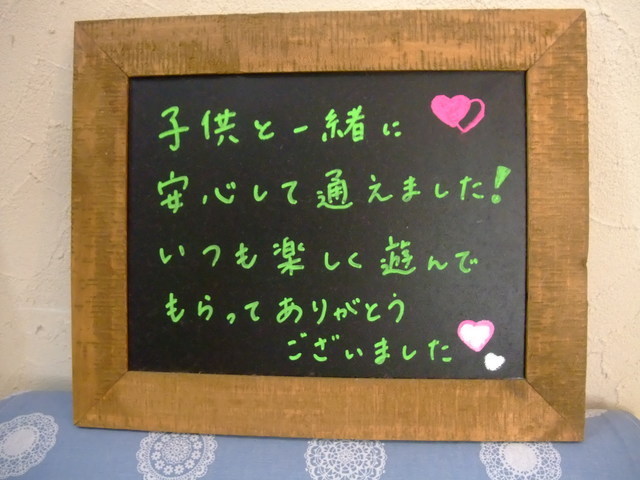 子供と一緒に
安心して通えました!
いつも楽しく遊んで
もらってありがとう
ございました